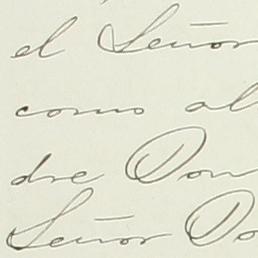 el Señor
como al
dre Don
Señor Do